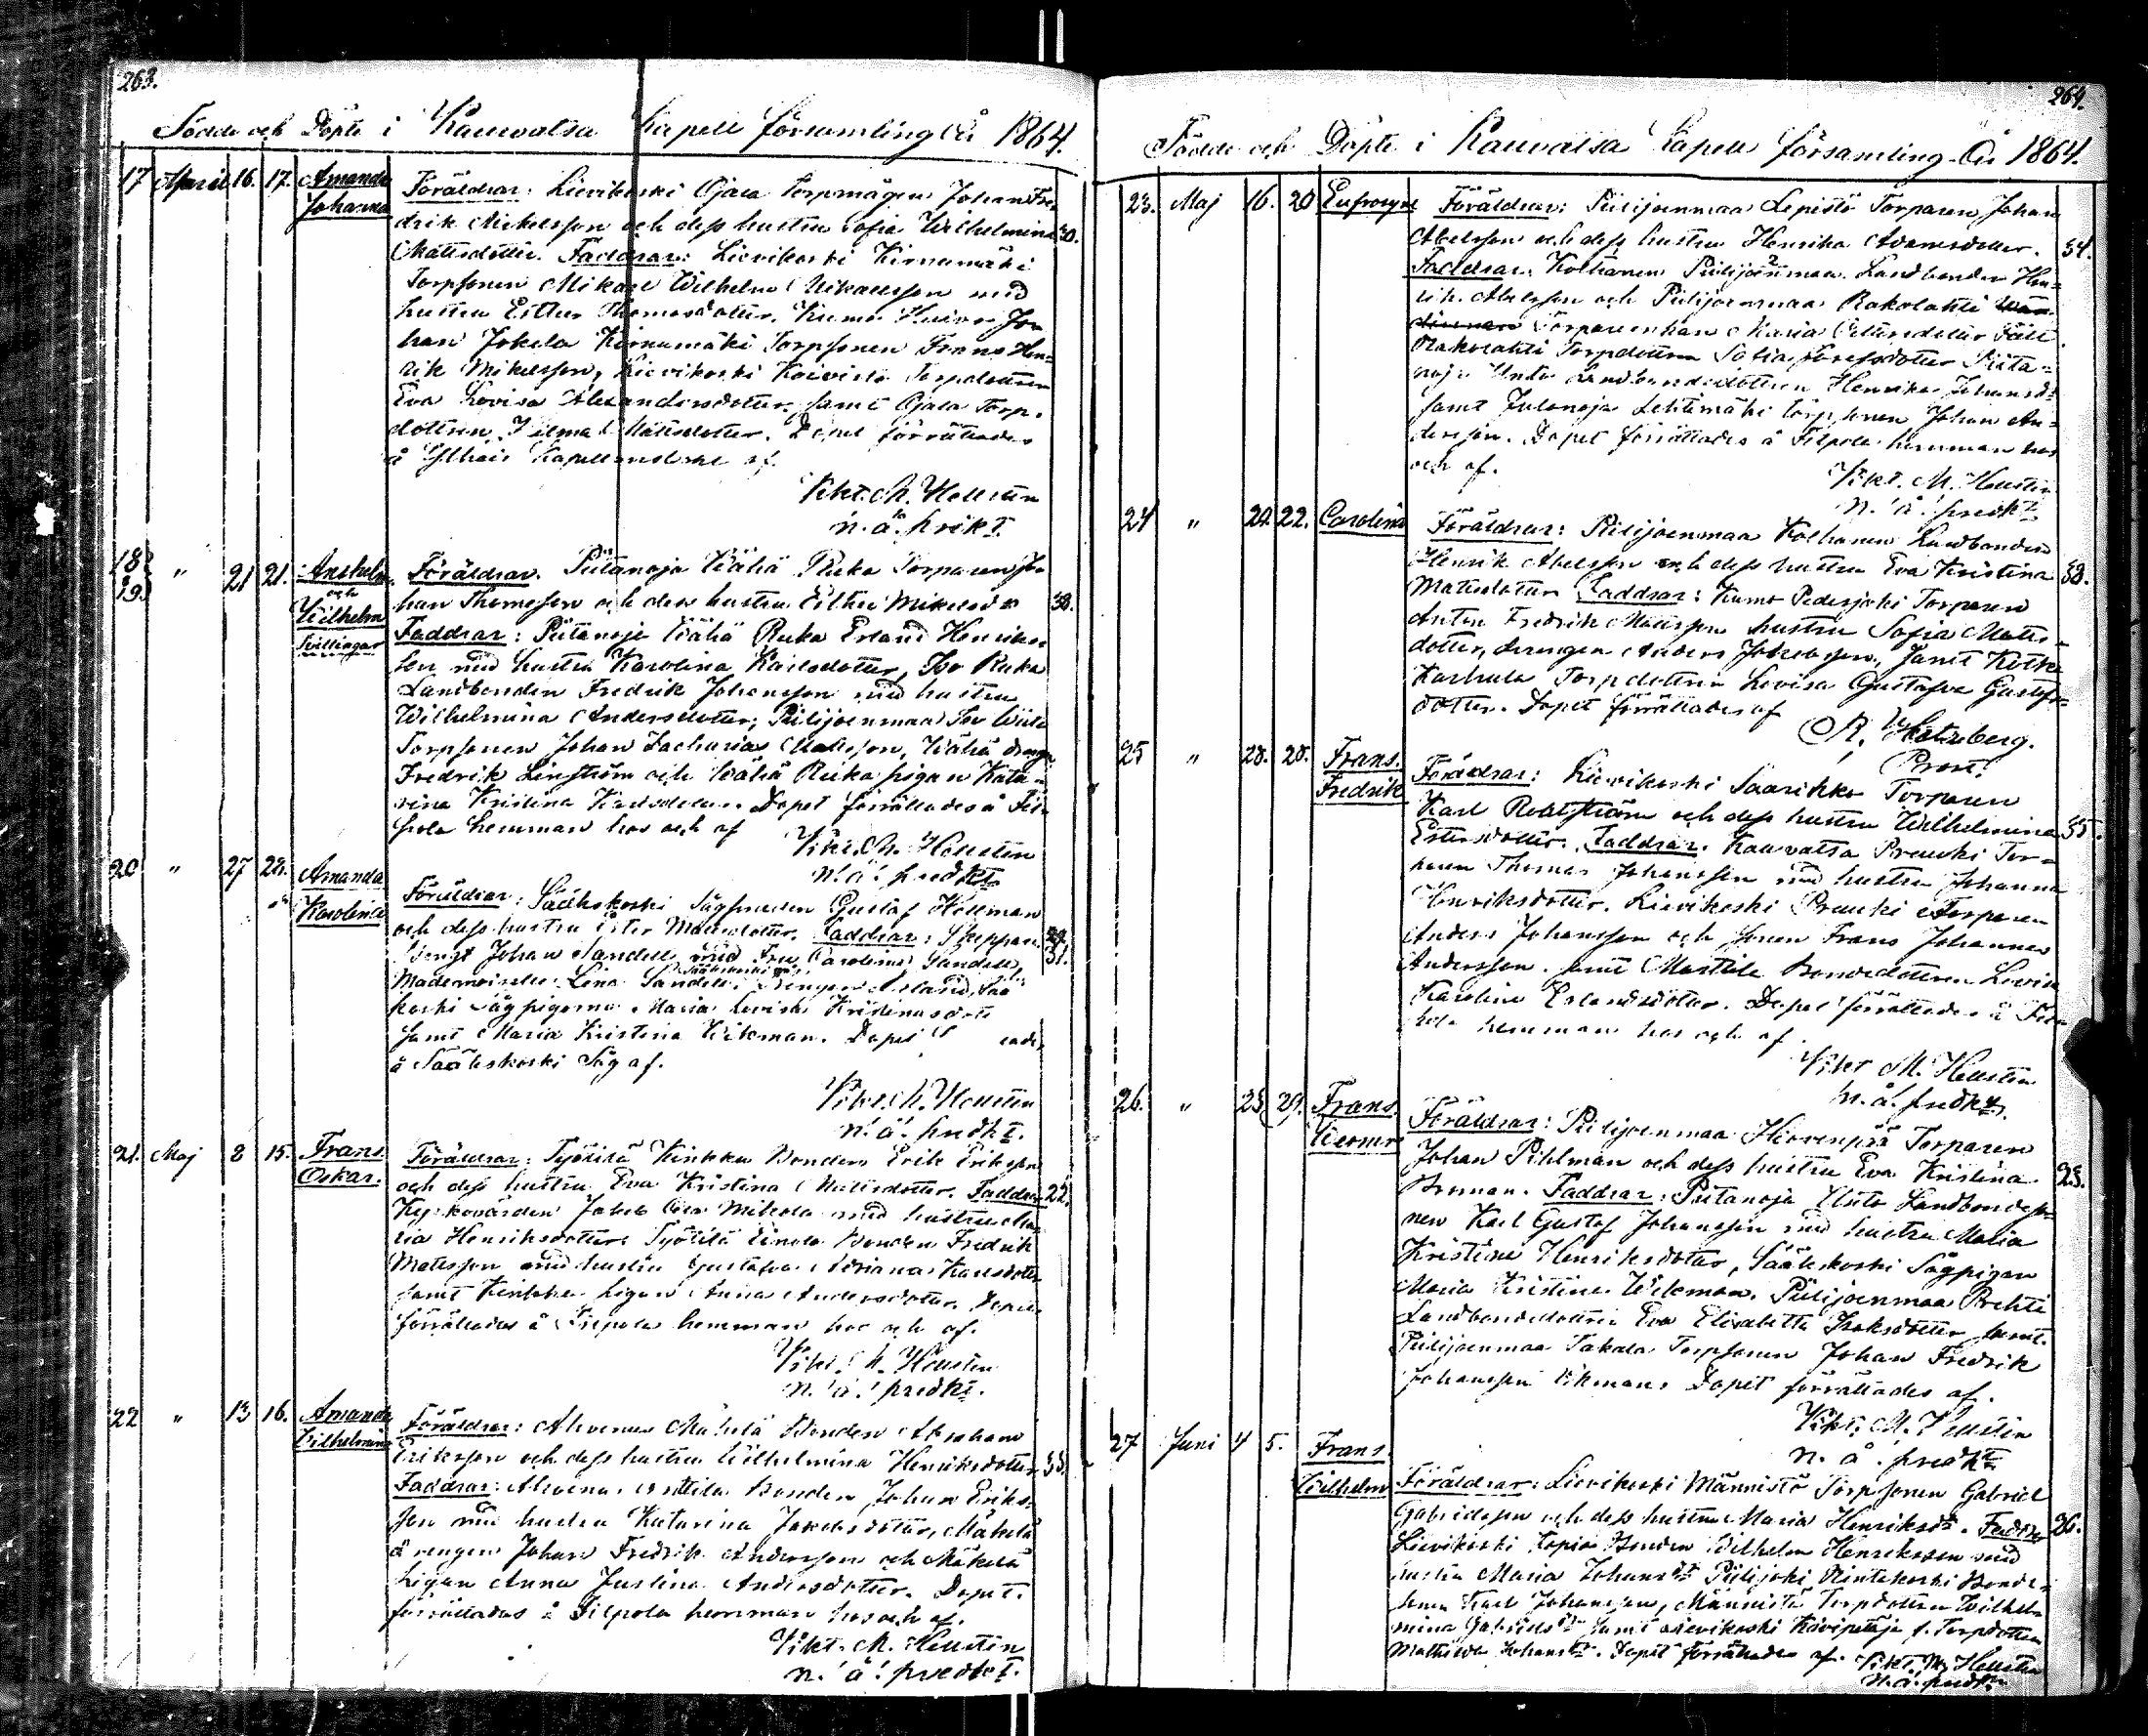 263.
Födde och Döpte i Kauvatsa Kapell församling År 1864.
17 April 16. 17. Amanda Johanna
Föräldrar: Lievikoski Ojala Torpmågen Johan Fre-
drik Mikelsson och dess hustru Sofia Wilhelmina 30.
Mattsdotter. Faddrar: Lievikoski Kirnumäki
Torpsonen Mikael Wilhelm Mikaelsson med
hustru Esther Thomasdotter, Kumo
han Jokela Kirnumäki Torpsonen Frans Hen-
rik Mikelsson, Lievikoski Koivisto Torpdottren
Eva Lovisa Alexandersdotter, samt Ojala Torp-
dottren Wilma Mattsdotter. Dopet förrättades
å Ylhäis Kapellansbol af
Vikt. M. Hellstén
n. å. predkt.
18 19 " 21 21. Anshelm och Wilhelm Tvillingar
Föräldrar. Piitanoja Wähä Ruka Torparen Jo-
han Thomasson och dess hustru Esther Mikelsdr 38.
Faddrar: Piitanoja Wähä Ruka Erland Henriks-
son med hustru Karolina Karlsdotter, Iso Ruka
Landbonden Fredrik Johansson med hustru
Wilhelmina Andersdotter, Piilijoenmaa
Torpsonen Johan Zacharias Mattsson, Wähä dräng
Fredrik Linström och Wähä Ruka pigan Kata-
rina Kristina Karlsdotter. Dopet förrättades å Fil-
pola hemman hos och af
Vikt. M. Hellstén
n. å. predkt.
20 " 27 28. Amanda Karolina
Föräldrar: Sääkskoski Sågsmeden Gustaf Hellman
och dess hustru Ester Mattsdotter. Faddrar: Skeppar 29.
Bengt Johan Sandell med Fru Carolina Sandell, 31.
Mademoiselle Lina Sandell,
koski Sågpigorna Maria Lovisa Kristinasdott
samt Maria Kristina Wikman. Dopet
å Sääkskoski Såg af.
Vikt. M. Hellstén
n. å. predkt.
21. Maj 8 15. Frans Oskar.
Föräldrar: Työtilä Kinkka Bonden Erik Eriksson
och dess hustru Eva Kristina Mattsdotter. Faddrar 22.
Kyrkovärden Jakob Mikola med hustru Ma-
ria Henriksdotter, Työtilä Einola Bonden Fredrik
Matsson med hustru Gustafva Adriana Karlsdotter
samt Kinkka pigan Anna Andersdotter. Dopet
förrättades å Filpola hemman hos och af.
Vikt. M. Hellstén
n. å. predkt.
22 " 13 16. Amanda Wilhelmina
Föräldrar: Ahvenus Mäkelä Bonden Abraham
Eriksson och dess hustru Wilhelmina Henriksdotter 33.
Faddrar: Ahvenus Anttila Bonden Johan Eriks-
son med hustru Katarina Jakobsdotter, Mäkelä
drengen Johan Fredrik Andersson och Mäkelä
pigan Anna Justina Andersdotter. Dopet
förrättades å Filpola hemman hos och af.
Vikt. M. Hellstén
n. å. predkt.
264.
Födde och Döpte i Kauvatsa Kapell församling År 1864.
23. Maj 16. 20 Eufrosyne
Föräldrar: Piilijoenmaa Lepistö Torparen Johan
Abelsson och dess hustru Henrika Adamsdotter. 34.
Faddrar: Kolhanen Piilijoenmaa Landbonden Hen-
rik Abelsson och Piilijoenmaa Rakolahti
Torparenkan Maria Fält
Rakolahti Torpdottren Sofia Josefsdotter Piita-
noja Unto Landbondedottren Henrika Johansdr
samt Julanoja Lehtimäki torpsonen Johan An-
dersson. Dopet förrättades å Filpola hemman hos
och af.
Vikt. M. Hellstén
n. å. predkt.
24 " 20. 22. Carolina
Föräldrar: Piilijoenmaa Kolhanen Landbonden
Henrik Abelsson och dess hustru Eva Kristina 38.
Matsdotter Faddrar: Kumo Pederjoki Torparen
Anton Fredrik Mattsson hustru Sofia Matts-
dotter, drengen Anders Jakobsson, samt
Karhula Torpdottren Lovisa Gustafva Gustafs-
dotter. Dopet förrättades af
Prost.
25 " 28. 28. Frans Fredrik
Föräldrar: Lievikoski Saarikko Torparen
Karl och dess hustru Wilhelmina 35.
Estersdotter. Faddrar. Kauvatsa Prauki Tor-
paren Thomas Johansson med hustru Johanna
Henriksdotter. Lievikoski Prauki Torparen
Anders Johansson och sonen Frans Johannes
Andersson. samt Marttila Bondedottren Lovisa
Karolina Erlandsdotter. Dopet förrättades å Fil-
pola hemman hos och af
Vikt M. Hellstén
n. å. predkt.
26. " 25 29. Frans Werner
Föräldrar: Piilijoenmaa Hirvenpää Torparen
Johan Pihlman och dess hustru Eva Kristina 23.
Broman. Faddrar: Piitanoja Unto Landbondeso-
nen Karl Gustaf Johansson med hustru Maria
Kristina Henriksdotter, Sääkskoski Sågpigan
Maria Kristina Wikman. Piilijoenmaa Prehti
Landbondedottren Eva Elisabetta Isaksdotter samt
Piilijoenmaa Takala Torpsonen Johan Fredrik
Johansson Vikman. Dopet förrättades af.
Vikt. M. Hellstén
n. å. predkt.
27 Juni 4 5. Frans Wilhelm
Föräldrar: Lievikoski Männistö Torpsonen Gabriel
Gabrielsson och dess hustru Maria Henriksdr. Faddrar 26.
Lievikoski Bonden Wilhelm Henriksson med
hustru Maria Johansdr Piilijoki Rintakoski Bonde-
sonen Karl Johansson, Männistö Torpdottren Wilhel-
mina Gabrielsdr samt Lievikoski f. Torpdottren
Mathilda Johansdr. Dopet förrättades af. Vikt. M. Hellstén
n. å. predkt.